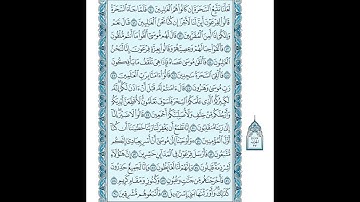 لَعَلَّنَا نَتَّبِعُ ٱلسَّحَرَةَ إِن كَانُوا۟ هُمُ ٱلْغَٰلِبِينَ ۝ فَلَمَّا جَآءَ ٱلسَّحَرَةُ
قَالُوا۟ لِفِرْعَوْنَ أَئِنَّ لَنَا لَأَجْرًا إِن كُنَّا نَحْنُ ٱلْغَٰلِبِينَ ۝ قَالَ نَعَمْ
وَإِنَّكُمْ إِذًا لَّمِنَ ٱلْمُقَرَّبِينَ ۝ قَالَ لَهُم مُّوسَىٰٓ أَلْقُوا۟ مَآ أَنتُم مُّلْقُونَ
۝ فَأَلْقَوْا۟ حِبَالَهُمْ وَعِصِيَّهُمْ وَقَالُوا۟ بِعِزَّةِ فِرْعَوْنَ إِنَّا لَنَحْنُ
ٱلْغَٰلِبُونَ ۝ فَأَلْقَىٰ مُوسَىٰ عَصَاهُ فَإِذَا هِىَ تَلْقَفُ مَا يَأْفِكُونَ
۝ فَأُلْقِىَ ٱلسَّحَرَةُ سَٰجِدِينَ ۝ قَالُوٓا۟ ءَامَنَّا بِرَبِّ ٱلْعَٰلَمِينَ ۝
رَبِّ مُوسَىٰ وَهَٰرُونَ ۝ قَالَ ءَامَنتُمْ لَهُۥ قَبْلَ أَنْ ءَاذَنَ لَكُمْ إِنَّهُۥ
لَكَبِيرُكُمُ ٱلَّذِى عَلَّمَكُمُ ٱلسِّحْرَ فَلَسَوْفَ تَعْلَمُونَ لَأُقَطِّعَنَّ أَيْدِيَكُمْ
وَأَرْجُلَكُم مِّنْ خِلَٰفٍ وَلَأُصَلِّبَنَّكُمْ أَجْمَعِينَ ۝ قَالُوا۟ لَا ضَيْرَ إِنَّآ
إِلَىٰ رَبِّنَا مُنقَلِبُونَ ۝ إِنَّا نَطْمَعُ أَن يَغْفِرَ لَنَا رَبُّنَا خَطَٰيَٰنَآ أَن كُنَّآ
أَوَّلَ ٱلْمُؤْمِنِينَ ۝ وَأَوْحَيْنَآ إِلَىٰ مُوسَىٰٓ أَنْ أَسْرِ بِعِبَادِىٓ إِنَّكُم
مُّتَّبَعُونَ ۝ فَأَرْسَلَ فِرْعَوْنُ فِى ٱلْمَدَآئِنِ حَٰشِرِينَ ۝ إِنَّ هَٰٓؤُلَآءِ
لَشِرْذِمَةٌ قَلِيلُونَ ۝ وَإِنَّهُمْ لَنَا لَغَآئِظُونَ ۝ وَإِنَّا لَجَمِيعٌ حَٰذِرُونَ
۝ فَأَخْرَجْنَٰهُم مِّن جَنَّٰتٍ وَعُيُونٍ ۝ وَكُنُوزٍ وَمَقَامٍ كَرِيمٍ ۝
كَذَٰلِكَ وَأَوْرَثْنَٰهَا بَنِىٓ إِسْرَٰٓءِيلَ ۝ فَأَتْبَعُوهُم مُّشْرِقِينَ ۝